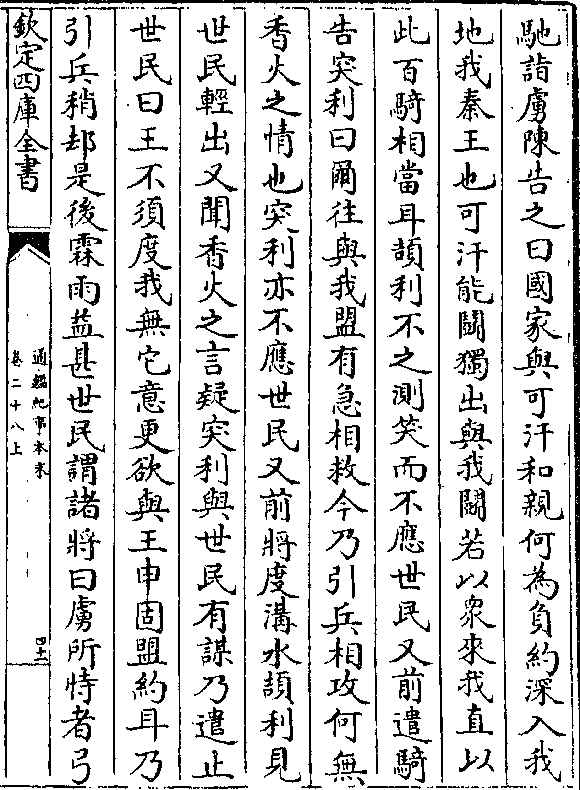 馳詣虜陳告之曰國家與可汗和親何為負約深入我
地我秦王也可汗能鬭獨出與我鬭若以衆來我直以
此百騎相當耳頡利不之測笑而不應世民又前遣騎
告突利曰爾往與我盟有急相救今乃引兵相攻何無
香火之情也突利亦不應世民又前將度溝水頡利見
世民輕出又聞香火之言疑突利與世民有謀乃遣止
世民曰王不須度我無它意更欲與王申固盟約耳乃
引兵稍却是後霖雨益甚世民謂諸將曰虜所恃者弓
欽定四庫全書
通鑑紀事本末
卷二十八上
四十